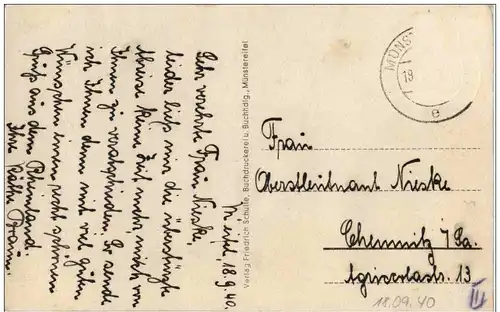 M'eifel, 18.9.40.
Sehr verehrte Frau Nieske,
leider ließ mir die überstürzte
Abreise keine Zeit mehr mich von
Ihnen zu verabschieden. So sende
ich Ihnen denn mit viel guten
Wünschen einen recht schönen
Gruß aus dem Rheinland.
Ihre Käthe Braun.
Verlag Friedrich Schulte, Buchdruckerei u. Buchhdlg., Münstereifel
MÜNST
19
e
Frau
Oberstleutnant Nieske
Chemnitz / Sa.
Agricolastr. 13
18.09.40
II